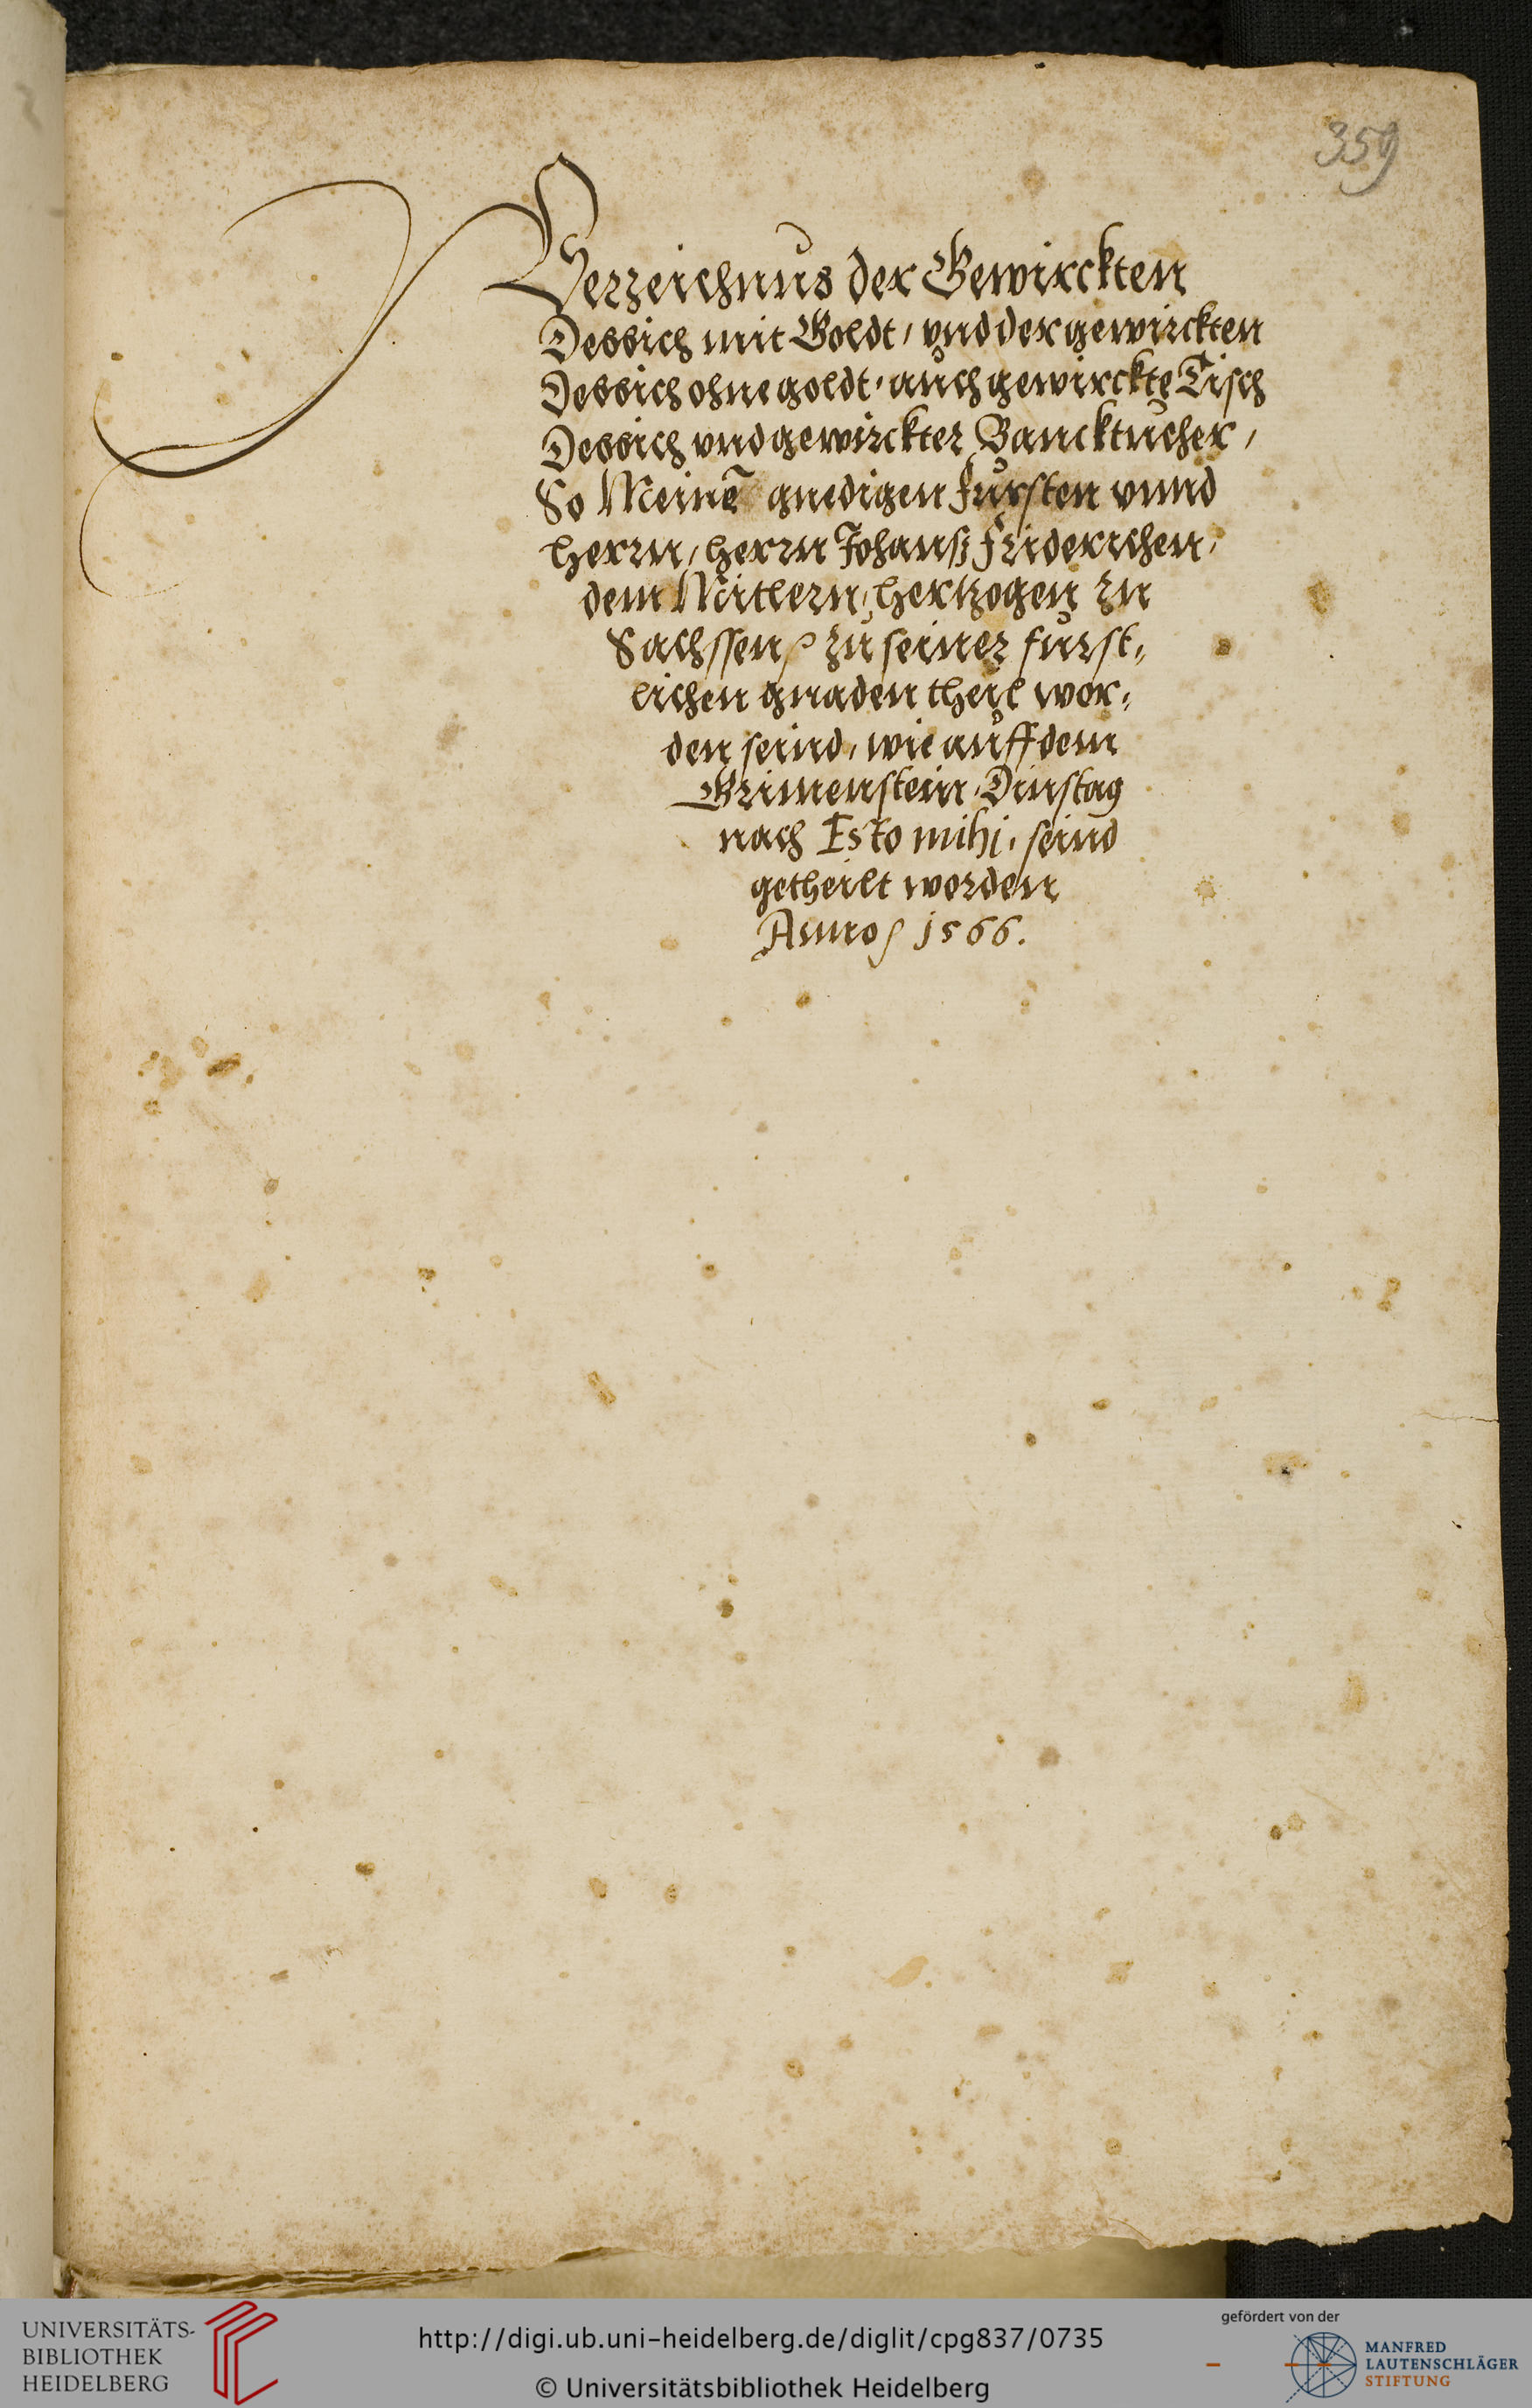 359
Verzeichnus der Gewirckten
Debbich mit Goldt, vnd der gewirckten
Debbich ohne goldt, auch gewirckte Tisch
Debbich vnd gewirckter Bancktucher,
So Meinē gnedigen Fursten vnnd
herrn, herrn Johanß Friderichen,
dem Mitlern, hertzogen zu
Sachssen zu seiner furst,,
lichen gnaden theil wor,,
den seind, wie auff dem
Grimenstein, Dinstag
nach Esto mihi, seind
getheilt worden
Anno 1566.
UNIVERSITÄTS-
BIBLIOTHEK
HEIDELBERG
http://digi.ub.uni-heidelberg.de/diglit/cpg837/0735
© Universitätsbibliothek Heidelberg
gefördert von der
MANFRED
LAUTENSCHLÄGER
STIFTUNG